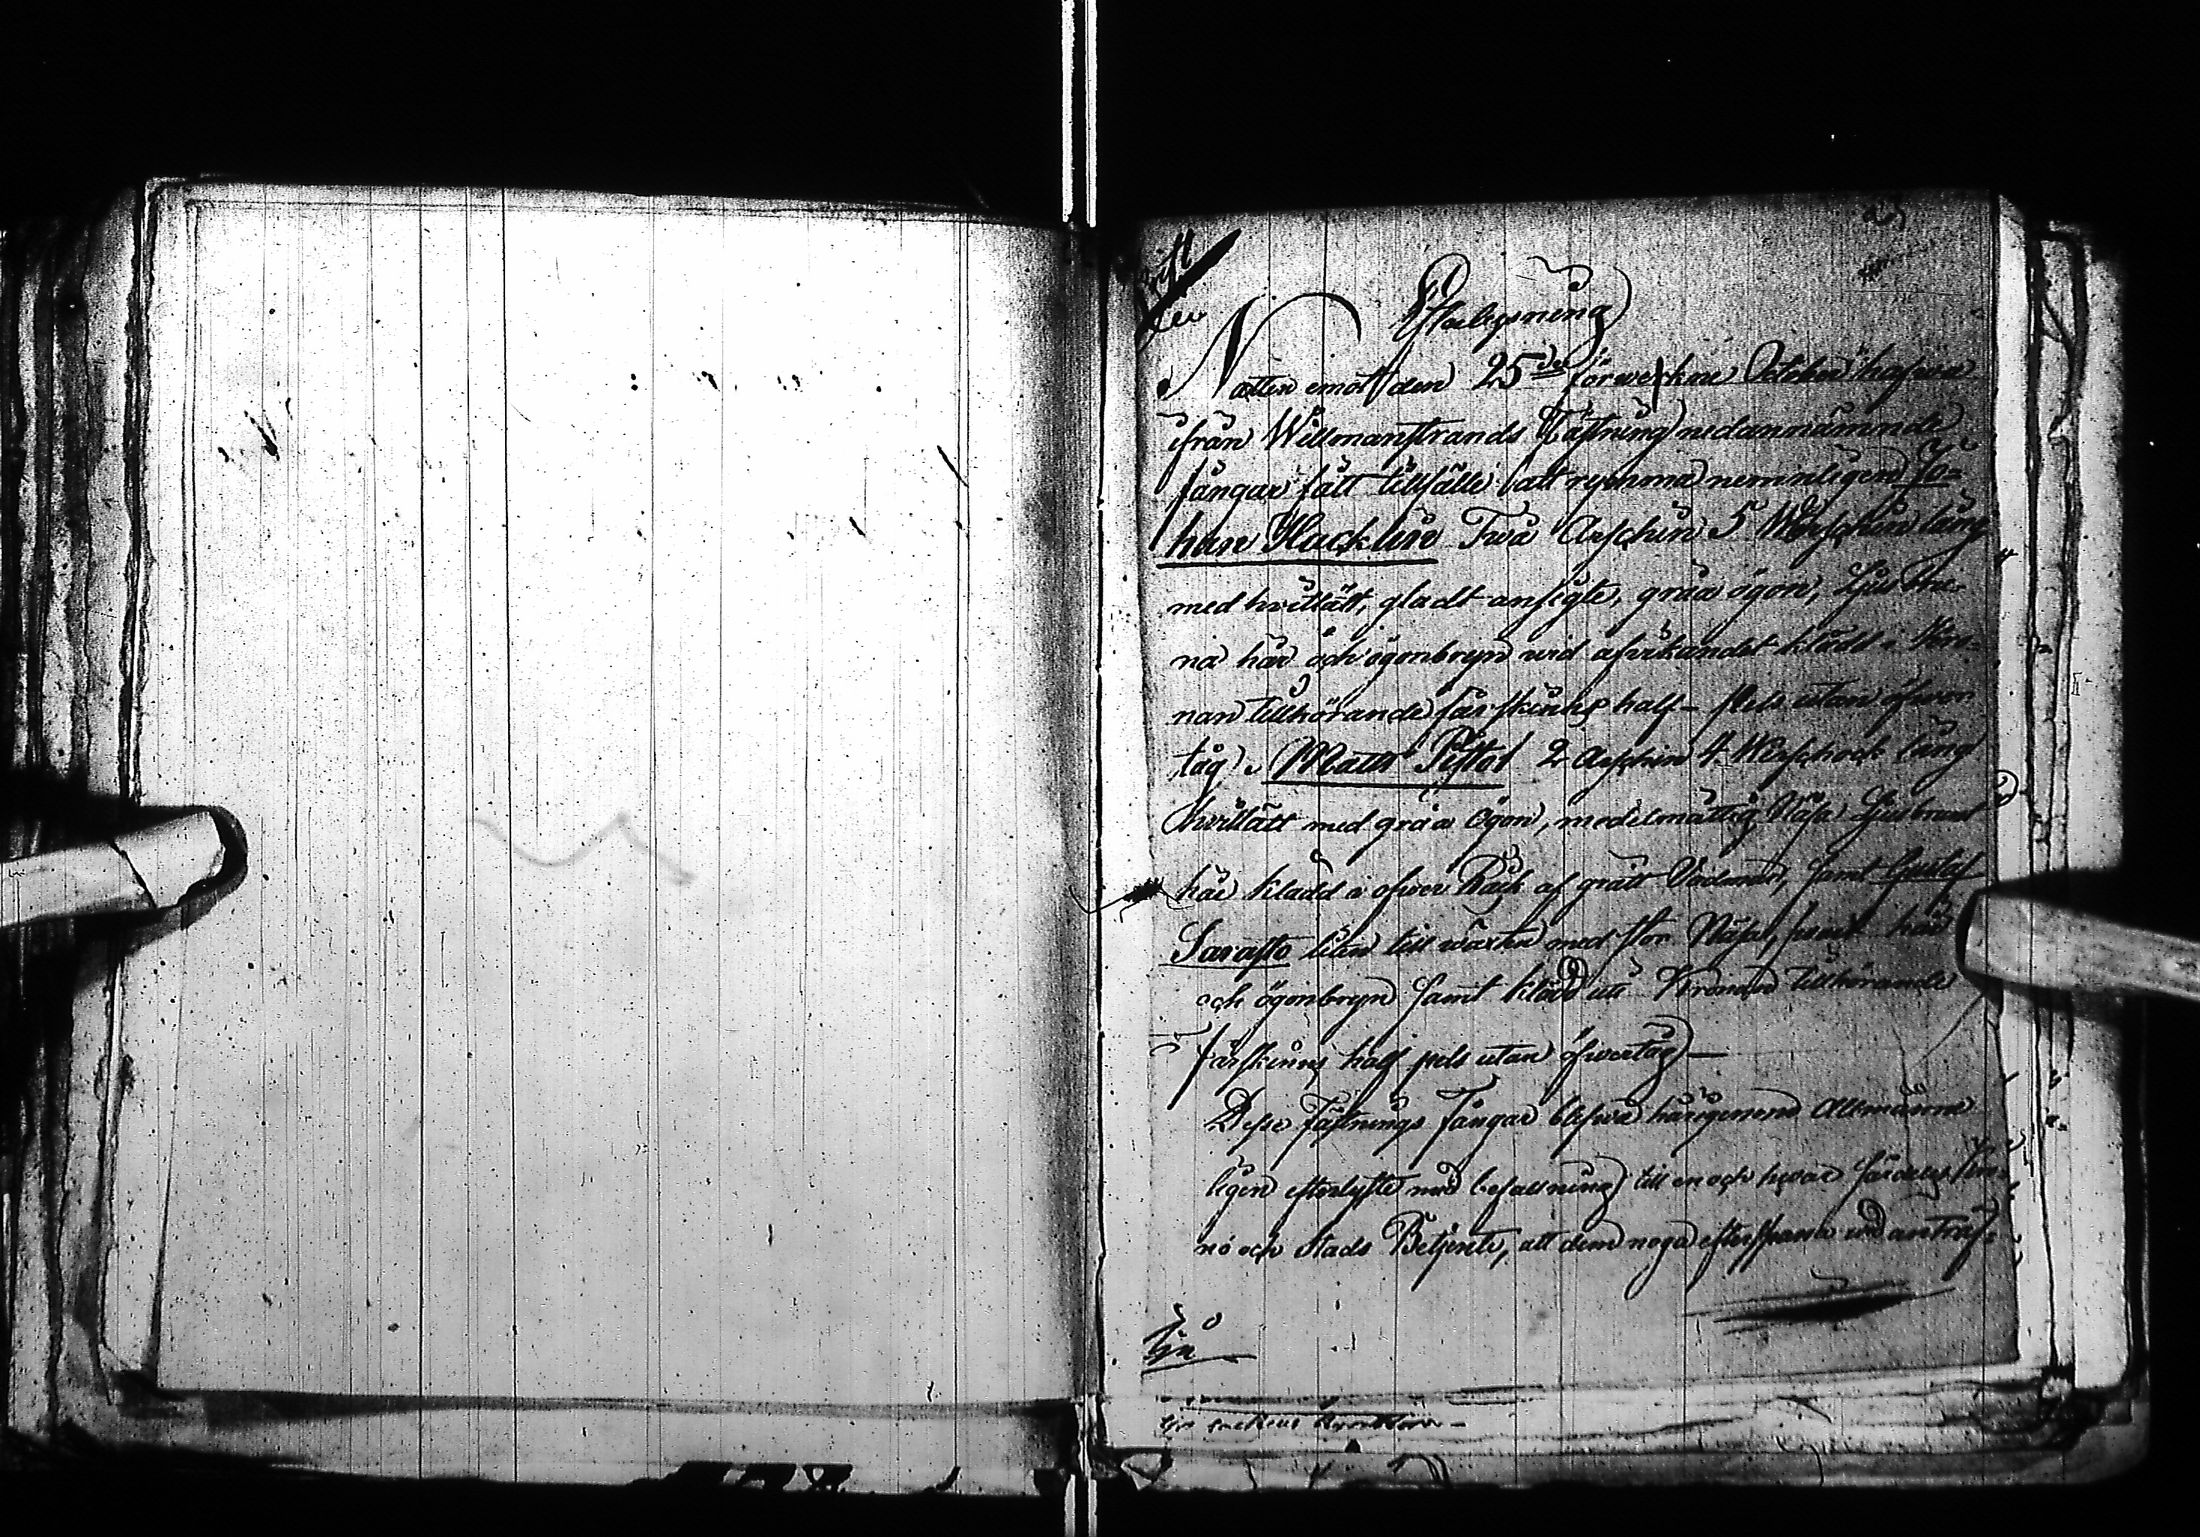 Efterlysning
Natten emot den 25de förwekne October hafwa
ifrån Willmanstrands Fästning nedannämnde
fångar fått tillfälle att rymma nemnligen Jo-
han Hacklin Twå Arschin 5 Werschin lång
med hvitlätt, gladt ansigte, gråa ögon, Ljusbru-
na hår och ögonbryn vid afvikandet klädd i Kro-
nan tillhörande fårskinns half-pels utan öfwer
tåg. Matts Pistol 2 Arschin 4 Werschock lång
hvitlätt med gråa Ögon, medelmåttig Näsa Ljusbrunt
hår klädd i öfwer Råck af grått Vadmal, samt Gustaf
Sarasto liten till wäxten med stor Näsa, hår
och ögonbryn samt klädd uti Kronan tillhörande
fårskinns half pels utan öfwertåg —
Desse Fästnings Fångar blifwa härigenom Allmänne
ligen efterlyste med befallning till en och hwar särdeles Kro-
no och Stads Betjente, att dem noga efterspana vid anträf-